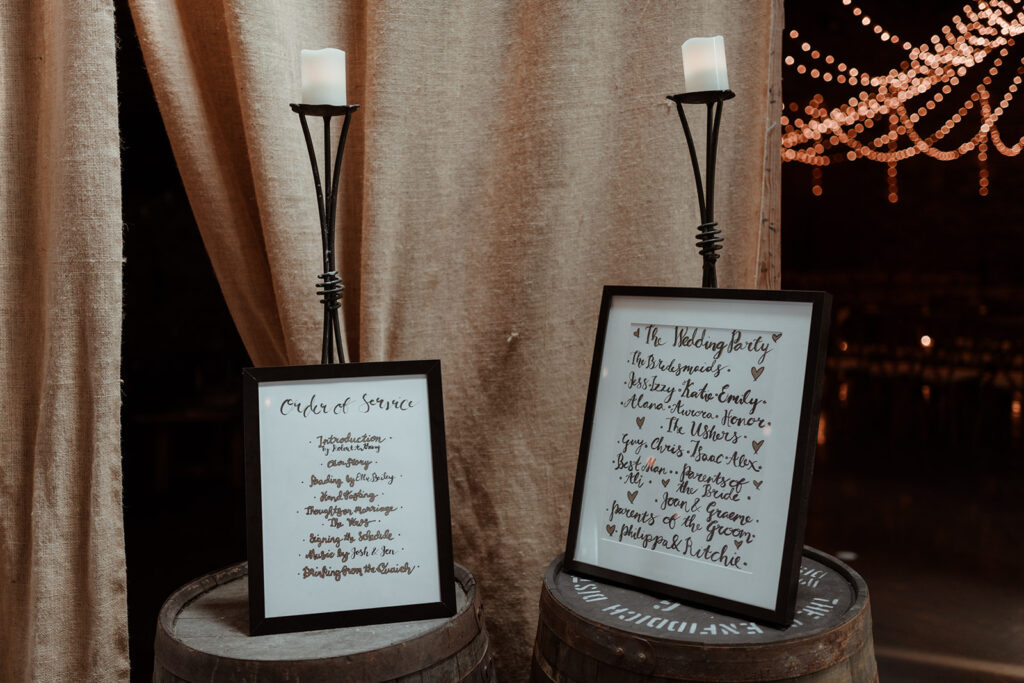 Order of Service
· Introduction ·
by Robert
· Our Story ·
· Reading by Elle Bailey
· Hand Fasting ·
Thoughts on Marriage
· The Vows ·
· Signing the Schedule ·
· Music by Josh & Jen ·
· Drinking from the Quaich ·
The Wedding Party
· The Bridesmaids ·
Jess · Izzy · Katie · Emily
Alana · Aurora · Honor ·
· The Ushers ·
Guy · Chris · Isaac · Alex ·
Best Man · · Parents of
· Ali · the Bride ·
Joan & Graeme ·
Parents of the Groom
· Philippa & Ritchie ·
THE
ENFIDDICH DIS